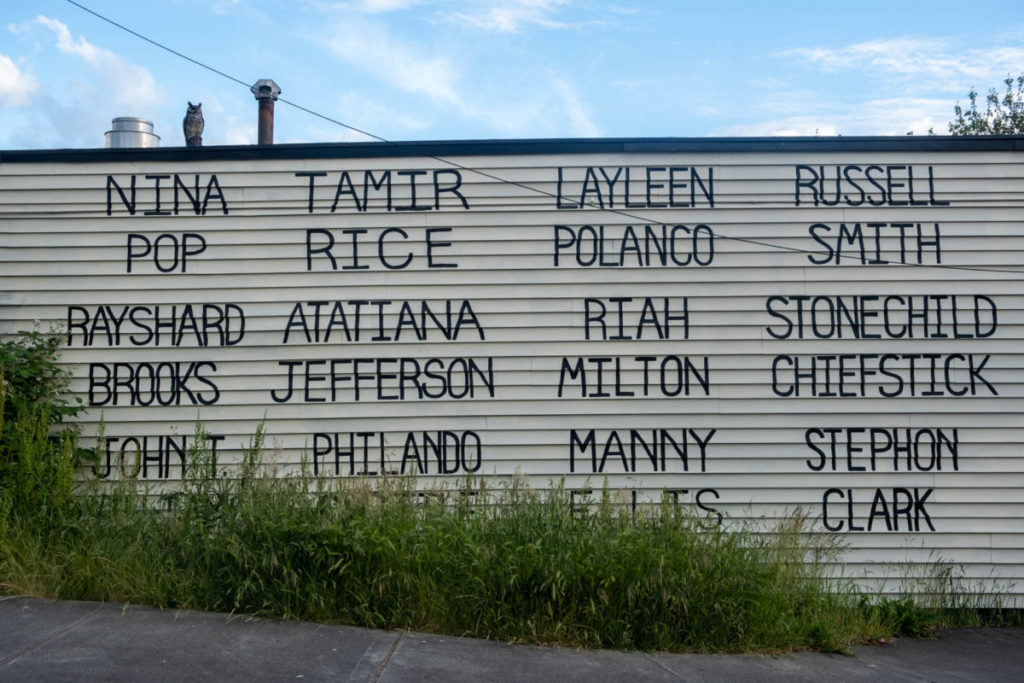 NINA TAMIR LAYLEEN RUSSELL
POP RICE POLANCO SMITH
RAYSHARD ATATIANA RIAH STONECHILD
BROOKS JEFFERSON MILTON CHIEFSTICK
JOHN T. PHILANDO MANNY STEPHON
CLARK